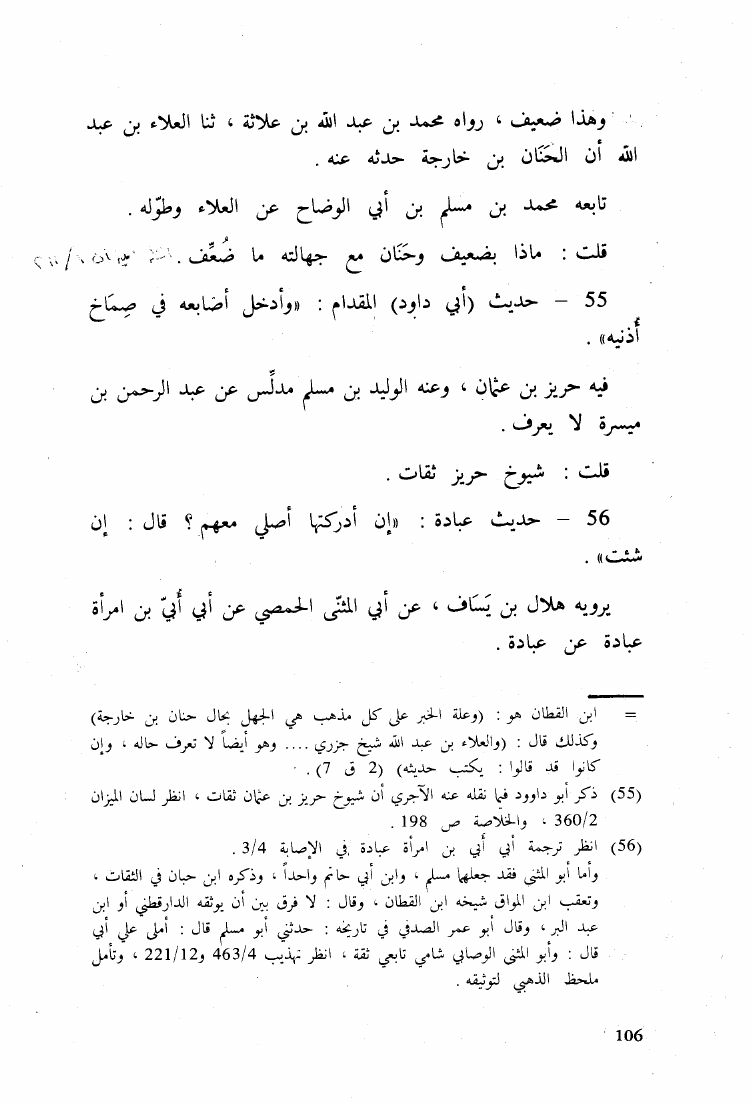 وهذا ضعيف ، رواه محمد بن عبد الله بن علاثة ، ثنا العلاء بن عبد
الله أن الحَنَان بن خارجة حدثه عنه .
تابعه محمد بن مسلم بن أبي الوضاح عن العلاء وطوّله .
قلت : ماذا بضعيف وحَنَان مع جهالته ما ضُعِّف .
55 – حديث (أبي داود) المقدام : «وأدخل أصَابعه في صِمَاخ
أُذنيه» .
فيه حريز بن عثمان ، وعنه الوليد بن مسلم مدلِّس عن عبد الرحمن بن
ميسرة لا يعرف .
قلت : شيوخ حريز ثقات .
56 – حديث عبادة : «إن أدركتها أصلي معهم ؟ قال : إن
شئت» .
يرويه هلال بن يَسَاف ، عن أبي المثنّى الحمصي عن أبي أُبيّ بن امرأة
عبادة عن عبادة .
= ابن القطان هو : (وعلة الخبر على كل مذهب هي الجهل بحال حنان بن خارجة)
وكذلك قال : (والعلاء بن عبد الله شيخ جزري .... وهو أيضاً لا تعرف حاله ، وإن
كانوا قد قالوا : يكتب حديثه) (2 ق 7) .
(55) ذكر أبو داوود فيما نقله عنه الآجري أن شيوخ حريز بن عثمان ثقات ، انظر لسان الميزان
360/2 ، والخلاصة ص 198 .
(56) انظر ترجمة أبي أبي بن امرأة عبادة في الإصابة 3/4 .
وأما أبو المثنى فقد جعلها مسلم ، وابن أبي حاتم واحداً ، وذكره ابن حبان في الثقات ،
وتعقب ابن المواق شيخه ابن القطان ، وقال : لا فرق بين أن يوثقه الدارقطني أو ابن
عبد البر ، وقال أبو عمر الصدفي في تاريخه : حدثني أبو مسلم قال : أملى علي أبي
قال : وأبو المثنى الوصابي شامي تابعي ثقة ، انظر تهذيب 463/4 و221/12 ، وتأمل
ملحظ الذهبي لتوثيقه .
106